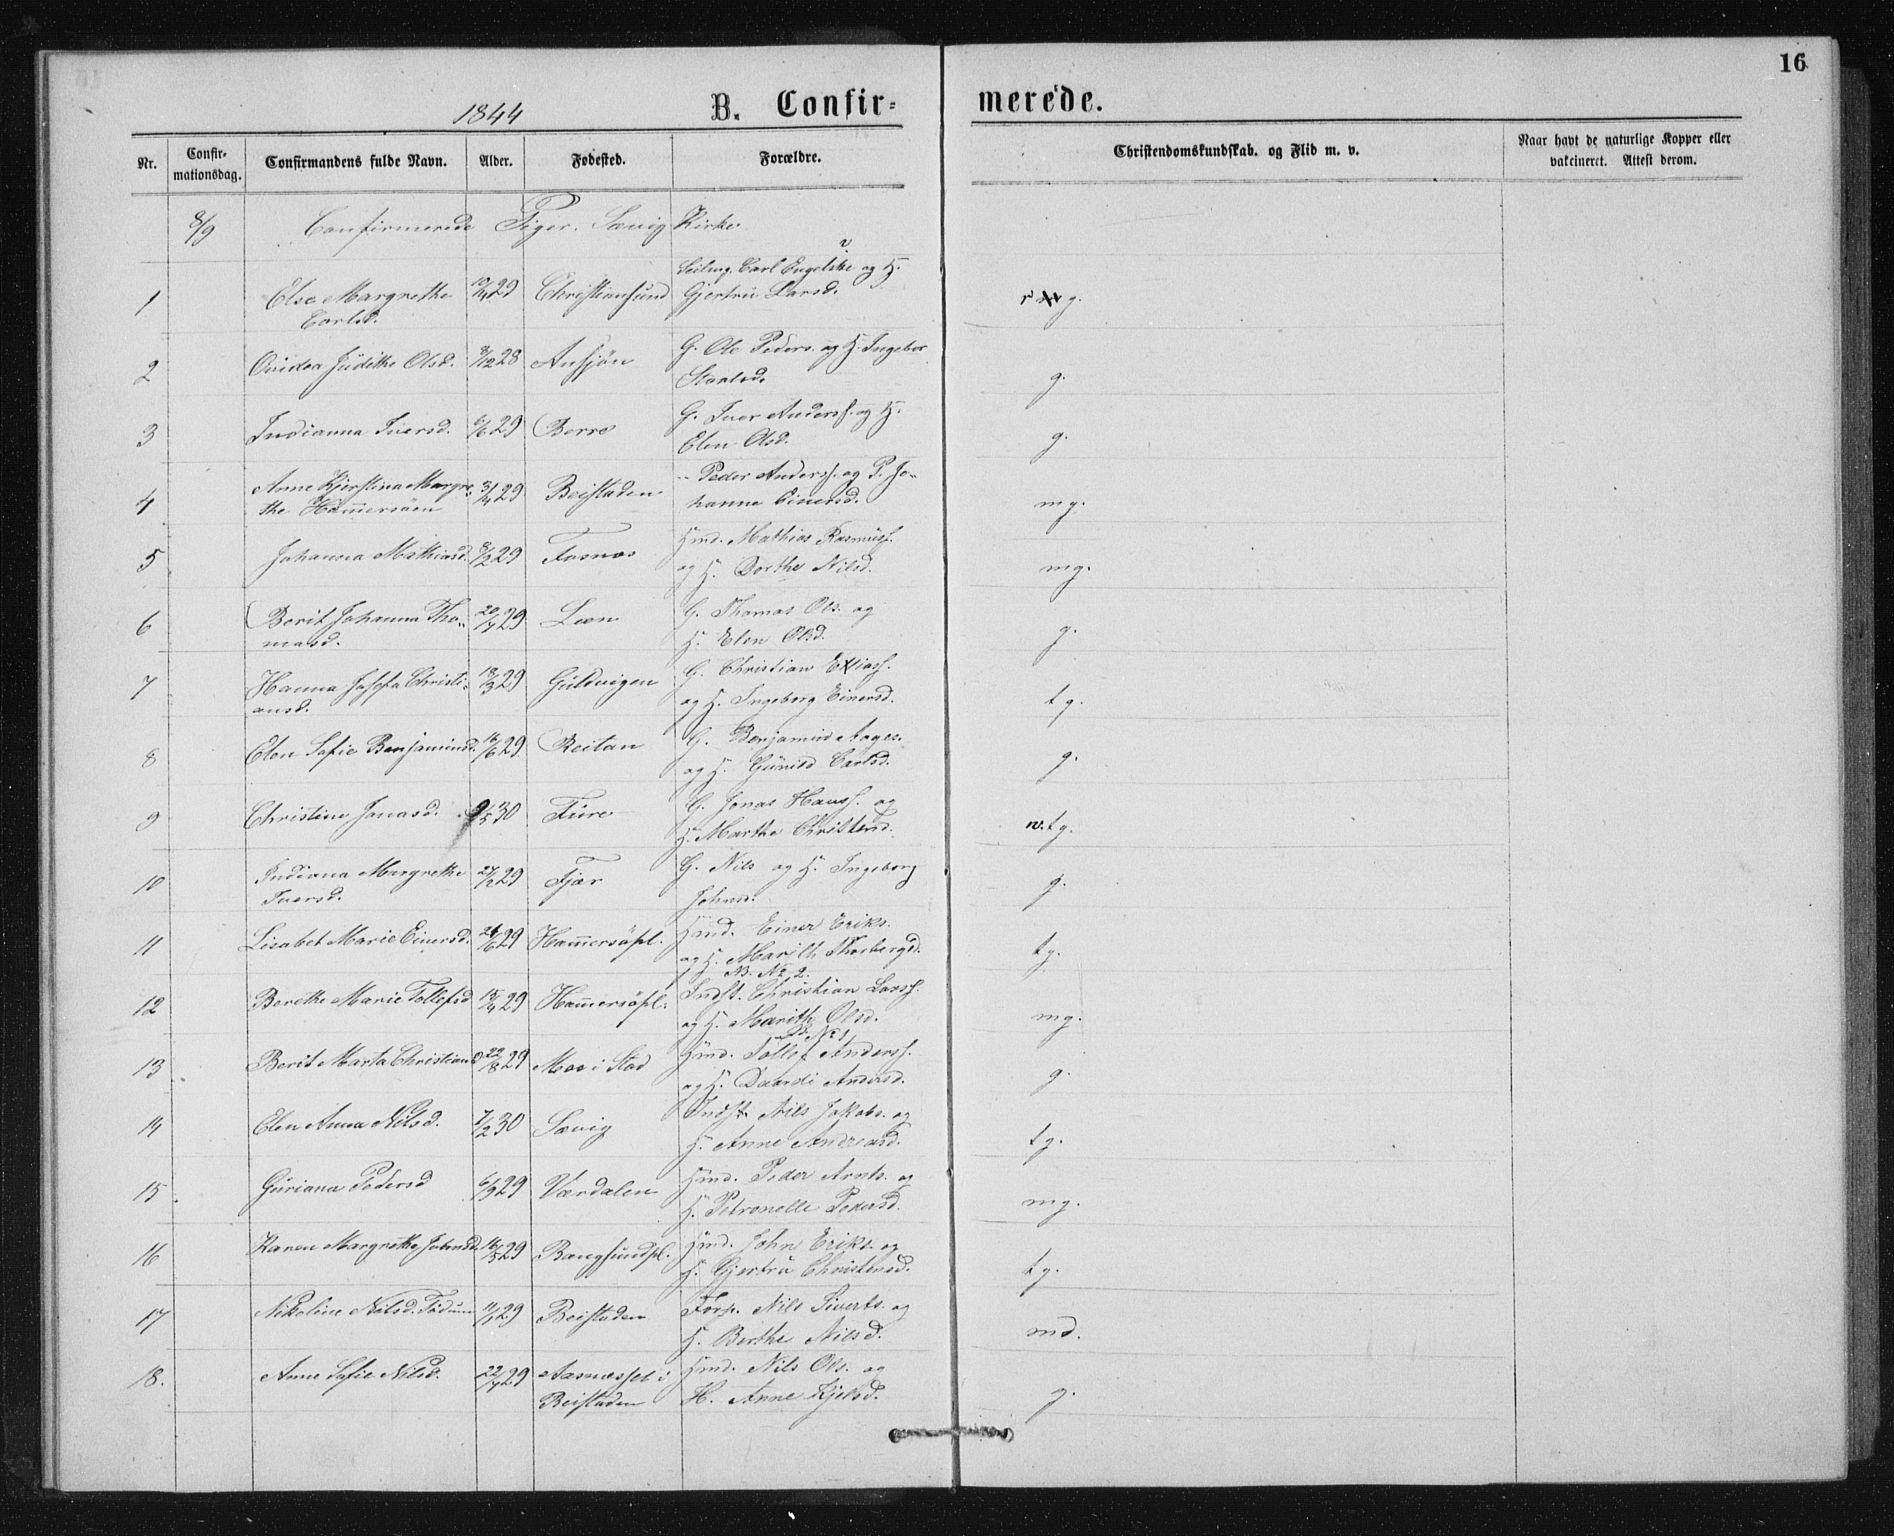 16
1844 B. Confir=merede.
Nr. Confirmationsdag. Confirmandens fulde Navn. Alder. Fødested. Forældre. Christendomskundskab, og Flid m. v. Naar havt de naturlige Kopper eller vakcineret. Attest derom.
8/9 Confirmerede Piger. Sævig Kirke
1 Else Margrethe 10/4 29 Christiansund Carl Engelske og H.
Carlsd. Gjertru Larsd. g.
2 Judithe Olsd. 8/12 28 Ansjøn G. Ole Peders. og H. Ingebor g.
3 Indianna Iversd. 6/6 29 Borre G. Iver Anders. og H.
Elen Olsd. g.
4 Anne Kjerstina Margre- 3/4 29 Beistaden -- Peder Anders. og P. Jo-
the Hammersöen hanne Einersd. mg.
5 Johanna Mathiasd. 8/2 29 Fosnæs Hmd. Mathias Rasmus.
og H. Dorthe Nilsd. mg.
6 Berit Johanna Tho- 20/7 29 Lien G. Thomas Ols. og
masd. H. Elen Olsd. g.
7 Hanna Josefa Christi- 18/3 29 Guldvigen G. Christian Eliass.
ansd. og H. Ingeborg Einersd. tg.
8 Elen Sofie Benjamind. 16/6 29 Reitan G. Benjamin Aages.
og H. Gunild Carlsd. g.
9 Christine Jonasd. 9/5 30 Fure G. Jonas Hanss. og
H. Marthe Christend. tg.
10 Indiana Margrethe 27/2 29 Fjær G. Nils og H. Ingeborg
Iversd. Johnsd. g.
11 Lisabet Marie Einersd. 21/6 29 Hammersöpl. Hmd. Einer Eriks.
og H. Marith Thorbergsd. tg.
NB. No 2.
12 Berethe Marie Tollefsd 15/4 29 Hammersöpl. Indst. Christian Larss.
og H. Marith Olsd. mg.
No 1
13 Berit Marta Christiansd 22/8 29 Moe i Stod Hmd. Tollef Anderss.
og H. Andersd. g.
14 Elen Anna Nilsd. 7/2 30 Sævig Indst. Nils Jakobs. og
H. Anne Andreasd. tg.
15 Guriana Pedersd 6/9 29 Værdalen Hmd. Peder Arnts. og
H. Petronelle Pedersd. mg.
16 Karen Margrethe Johnsd. 16/5 29 Bangsundpl. Hmd. John Eriks. og
H. Gjertru Christensd. tg.
17 Nikoline Nilsd. 11/1 29 Beistaden Forp. Nils Siverts. og
H. Berthe Nilsd. md.
18. Anne Sofie Nilsd. 22/7 29 i Hmd. Nils Ols. og
Beistaden H. Anne Kjelsd. g.